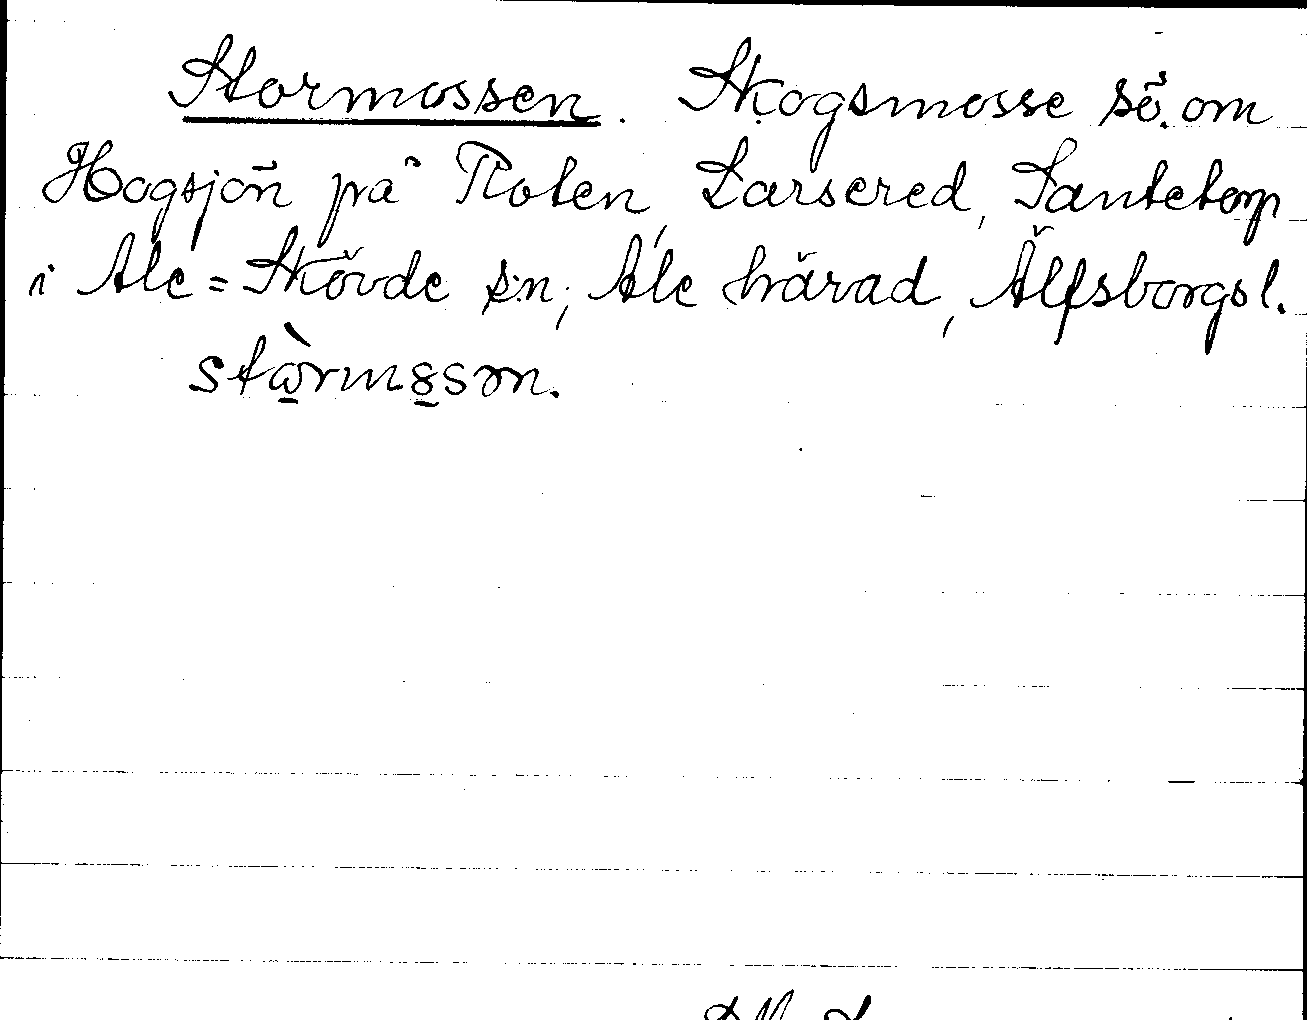 Stormossen. Skogsmosse sö. om
Hogsjön på Roten, Larsered, Tantetorp
i Ale=Skövde sn, Ale härad, Älfsborgs l.